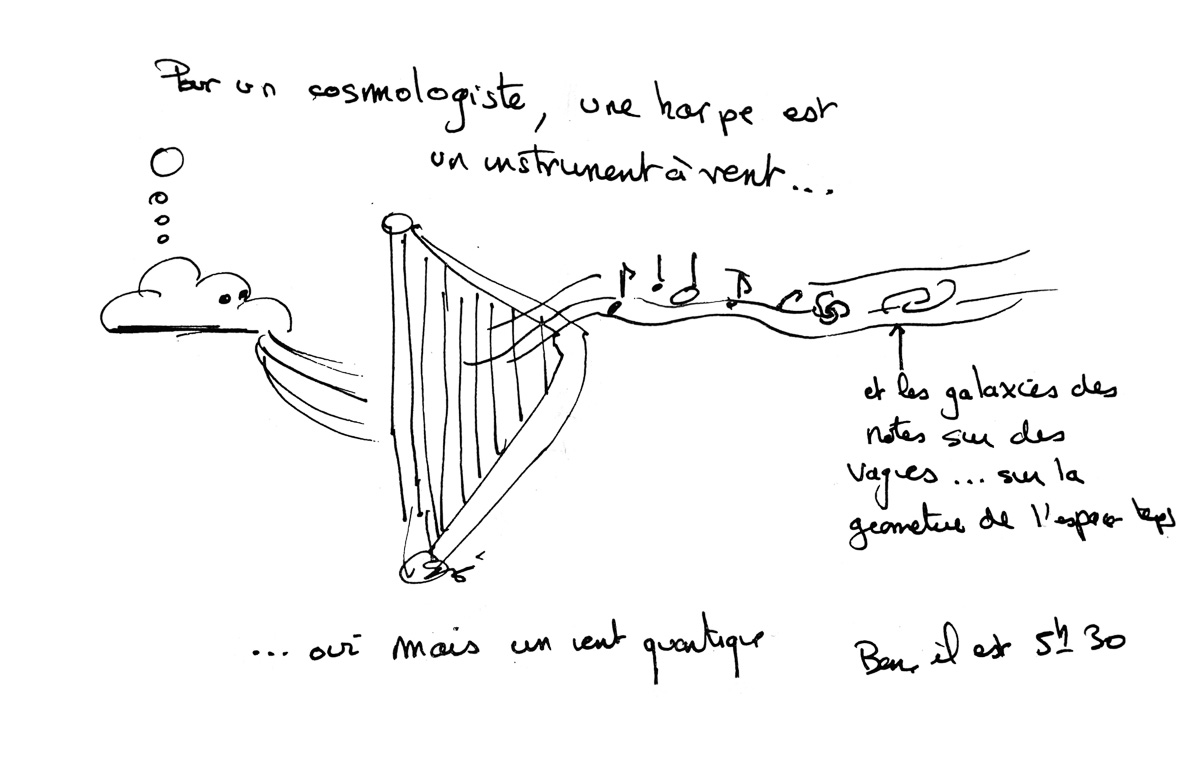 Pour un cosmologiste, une harpe est
un instrument à vent...
et les galaxies des
notes sur des
vagues ... sur la
geometrie de l'espace temps
... oui mais un vent quantique
Bon, il est 5h30